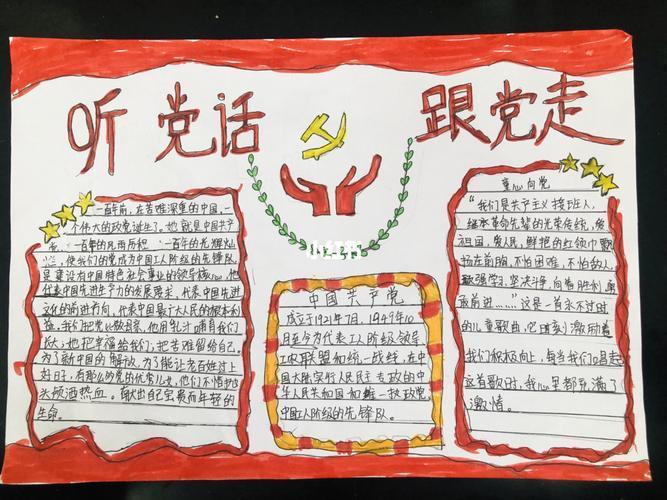 听党话
跟党走
一百年前,在苦难深重的中国,一
个伟大的政党诞生了。她就是中国共产
党。一百年的风雨历程,一百年的光辉灿
烂,使我们的党成为中国工人阶级的先锋队,
是建设有中国特色社会事业的领导核心,他
代表中国先进生产力的发展要求,代表中国先进
文化的前进方向,代表中国最广大人民的根本利
益。我们把党比做母亲,他用乳汁哺育我们
成长;她把幸福给我们;把苦难留给自己。
为了新中国的解放,为了能让老百姓过上
好日子,有那么的党的优秀儿女,他们不惜抛
头颅洒热血。献出自己宝贵而年轻的
生命。
小红书
中国共产党
成立于1921年7月,1949年10
月至今为代表工人阶级领导
工农联盟和统一战线,在中
国大陆实行人民民主专政的中
华人民共和国和唯一执政党,
中国工人阶级的先锋队。
童心向党
“我们是共产主义接班人,
继承革命先辈的光荣传统,爱
祖国,爱人民,鲜艳的红领巾飘
扬在前胸,不怕困难,不怕敌人,
顽强学习,坚决斗争,向着胜利,勇
敢前进……”这是一首永不过时
的儿童歌曲,它时刻激励着
我们积极向上,每当我们唱起
这首歌时,我心里都充满了
激情。